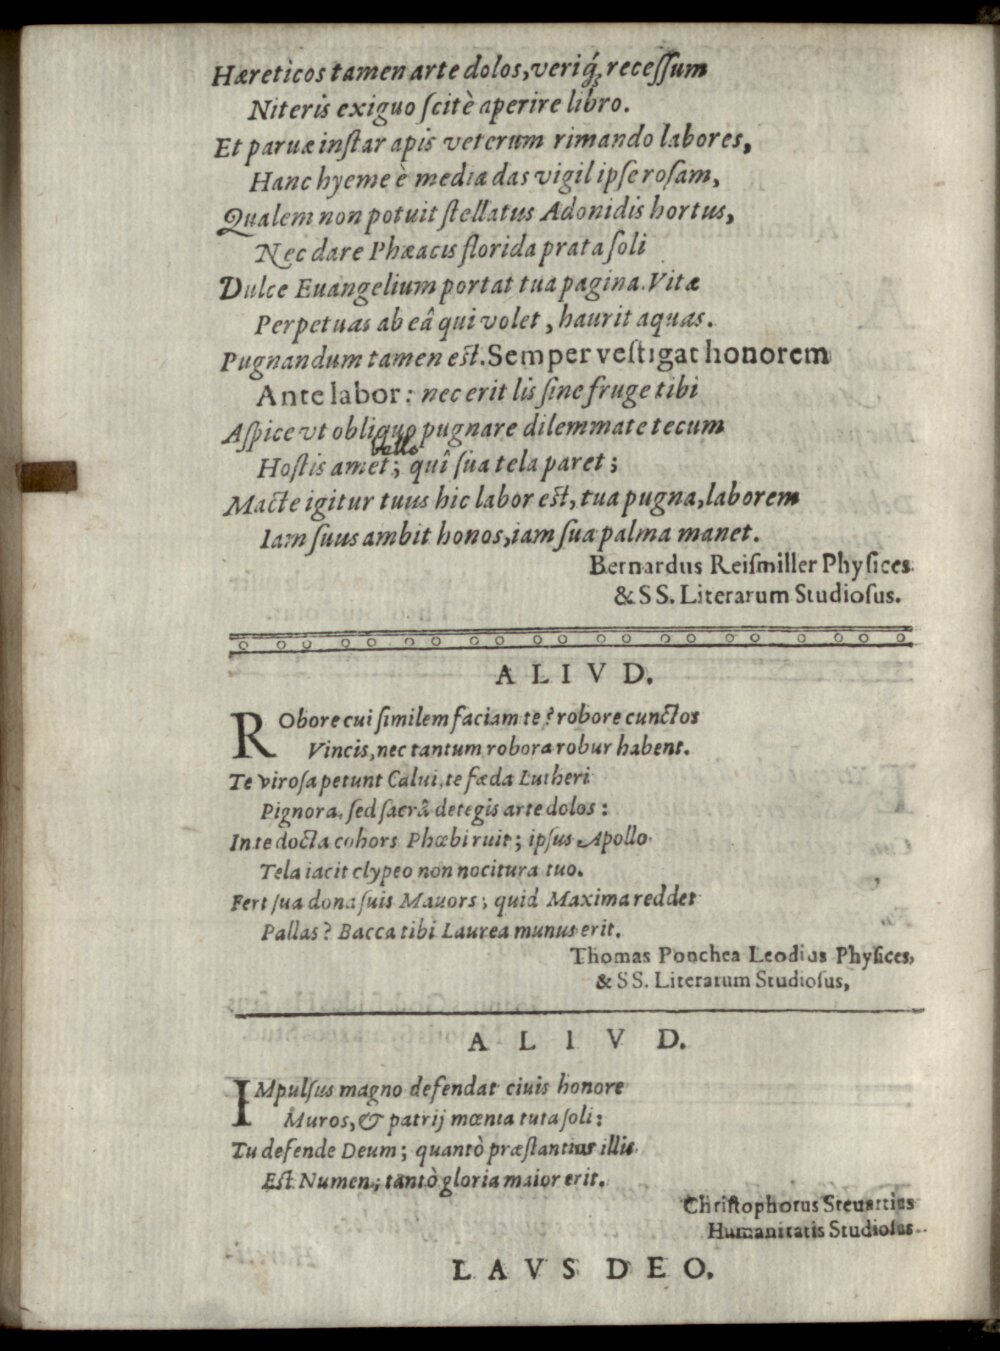 Hæreticos tamen arte dolos, veriq́; recessum
Niteris exiguo scitè aperire libro.
Et paruæ instar apis veterum rimando labores,
Hanc hyeme è media das vigil ipse rosam,
Qualem non potuit stellatus Adonidis hortus,
Nec dare Phæacis florida prata soli
Dulce Euangelium portat tua pagina. Vitæ
Perpetuas ab eâ qui volet, haurit aquas.
Pugnandum tamen est. Semper vestigat honorem
Ante labor: nec erit lis sine fruge tibi
Aspice vt obliquo pugnare dilemmate tecum
bello
Hostis amet; quî sua tela paret;
Macte igitur tuus hic labor est, tua pugna, laborem
Iam suus ambit honos, iam sua palma manet.
Bernardus Reismiller Physices
& SS. Literarum Studiosus.
ALIVD.
RObore cui similem faciam te? robore cunctos
Vincis, nec tantum robora robur habent.
Te virosa petunt Calui, te fæda Lutheri
Pignora, sed sacrâ detegis arte dolos:
In te docta cohors Phœbi ruit; ipsus Apollo
Tela iacit clypeo non nocitura tuo.
Fert sua dona suis Mauors; quid Maxima reddet
Pallas? Bacca tibi Laurea munus erit.
Thomas Ponchea Leodius Physices,
& SS. Literarum Studiosus,
ALIVD.
IMpulsus magno defendat ciuis honore
Muros, & patrij mœnia tuta soli:
Tu defende Deum; quantò præstantius illis
Est Numen; tantò gloria maior erit.
Christophorus Steuartius
Humanitatis Studiosus.
LAVS DEO.